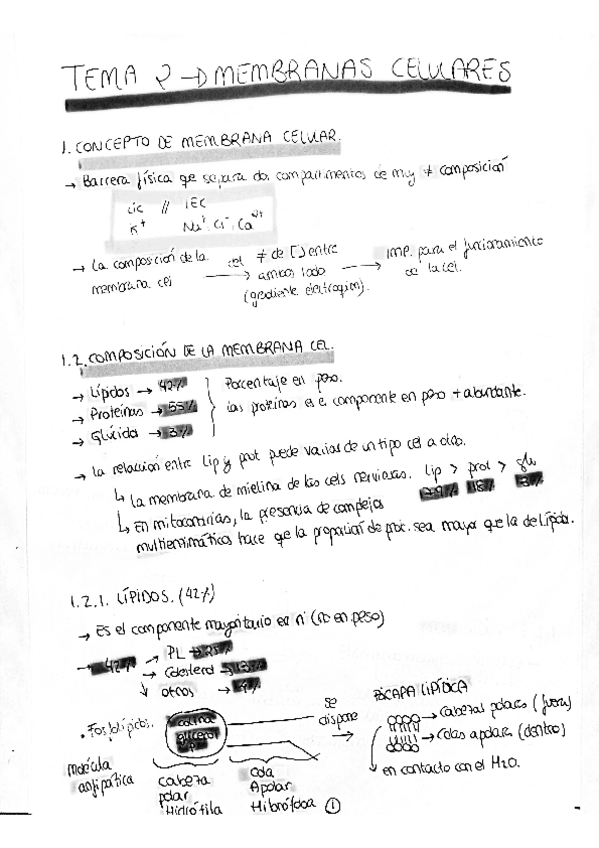 TEMA 2 → MEMBRANAS CELULARES
1. CONCEPTO DE MEMBRANA CELULAR.
→ Barrera física que separa dos compartimentos de muy ≠ composición
LIC // LEC
K+ Na+, Cl-, Ca2+
→ La composición de la membrana cel → ≠ de [] entre ambos lados (gradiente electroquím). → imp. para el funcionamiento de la cel.
1.2. COMPOSICIÓN DE LA MEMBRANA CEL.
→ Lípidos → 42%
→ Proteínas → 55%
→ Glúcidos → 3%
Porcentaje en peso.
las proteínas es el componente en peso + abundante.
→ la relación entre Lip y prot puede variar de un tipo cel a otro.
↳ la membrana de mielina de las cels nerviosas. Lip > prot > glu
79% 18% 3%
↳ En mitocondrias, la presencia de complejos
multienzimáticos hace que la proporción de prot. sea mayor que la de Lípidos.
1.2.1. LÍPIDOS. (42%)
→ Es el componente mayoritario en nº (no en peso)
→ 42% → PL → 25%
→ Colesterol → 13%
→ otros → 4%
• Fosfolípidos.
colina
glicerol
P
se dispone →
BICAPA LIPÍDICA
→ Cabezas polares (fuera)
→ Colas apolares (dentro)
en contacto con el H2O.
molécula
anfipática
cabeza
polar
Hidrófila
Cola
Apolar
Hibrófoba
1